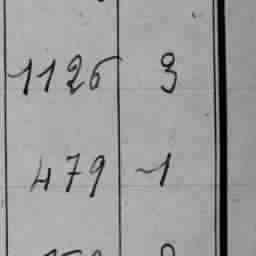 1126 3
479 1